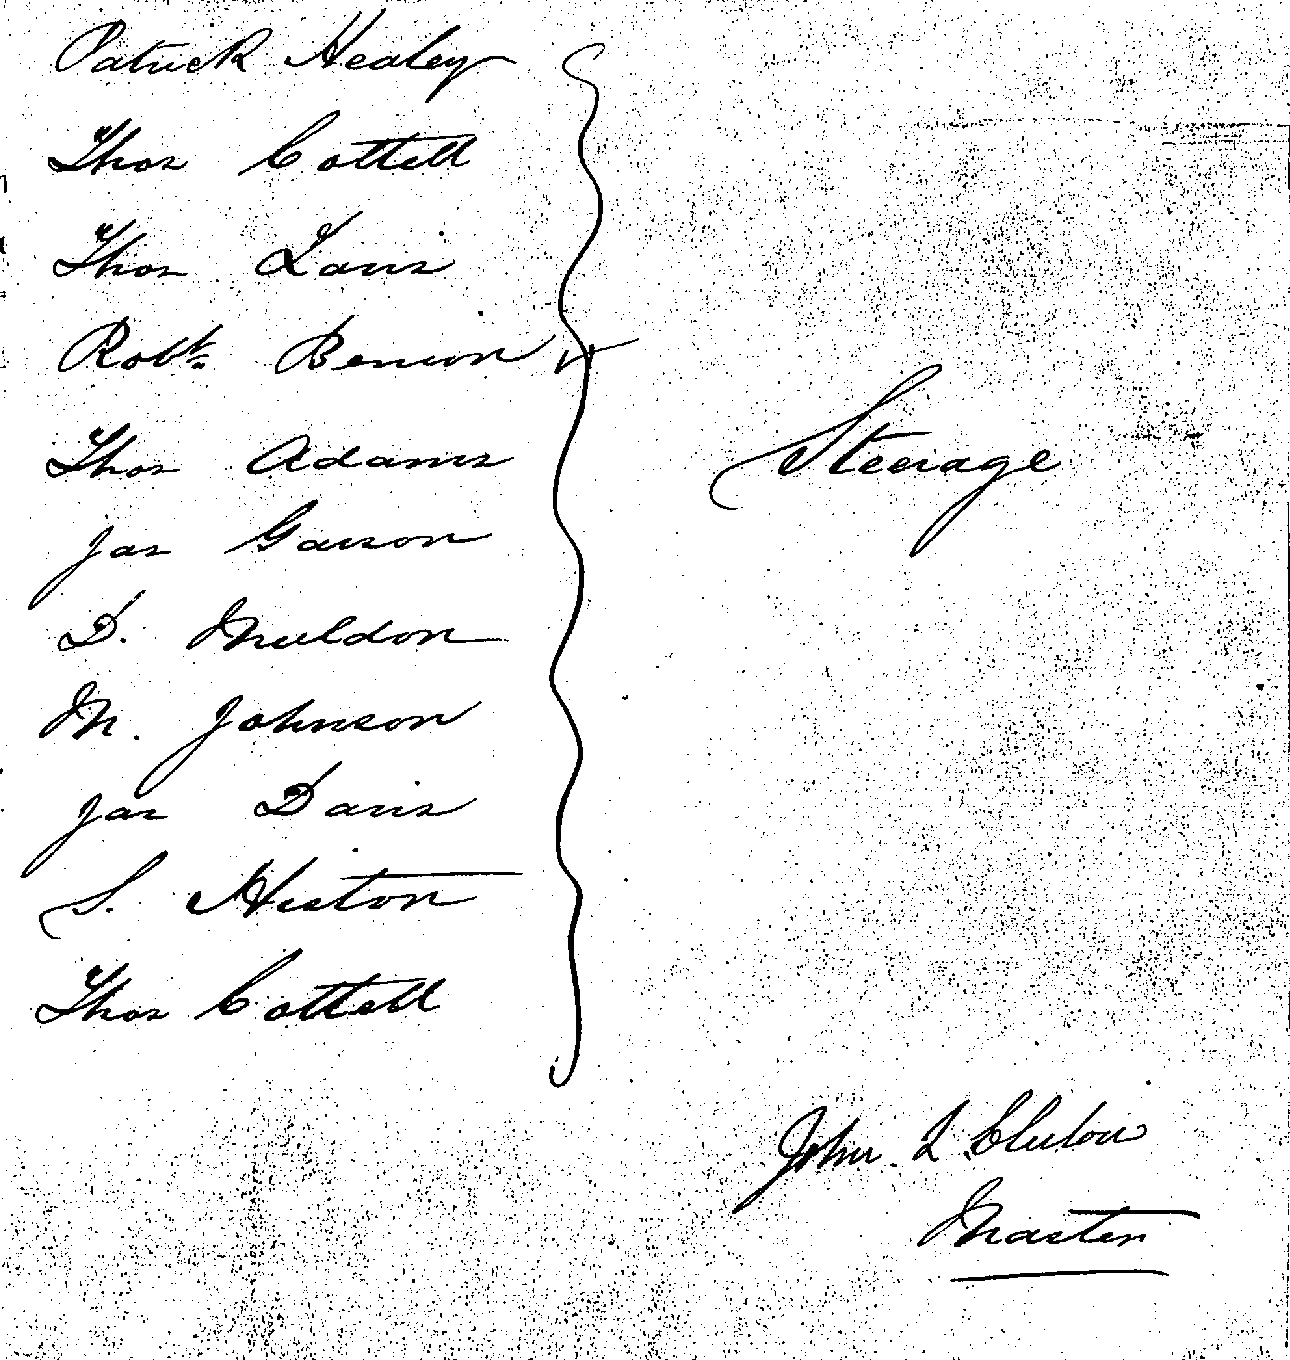 Patrick Healey
Thos Cottell
Thos Lavis
Robt. Benson
Thos Adams
Steerage
Jas Garson
D. Muldon
M. Johnson
Jas Davis
S. Heston
Thos Cottell
John L
Master